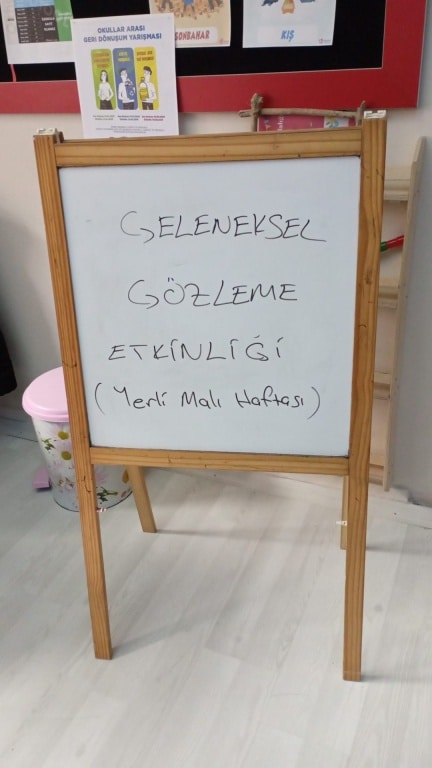 OKULLAR ARASI
GERİ DÖNÜŞÜM YARIŞMASI
SONBAHAR
KIŞ
GELENEKSEL
GÖZLEME
ETKİNLİĞİ
(Yerli Malı Haftası)